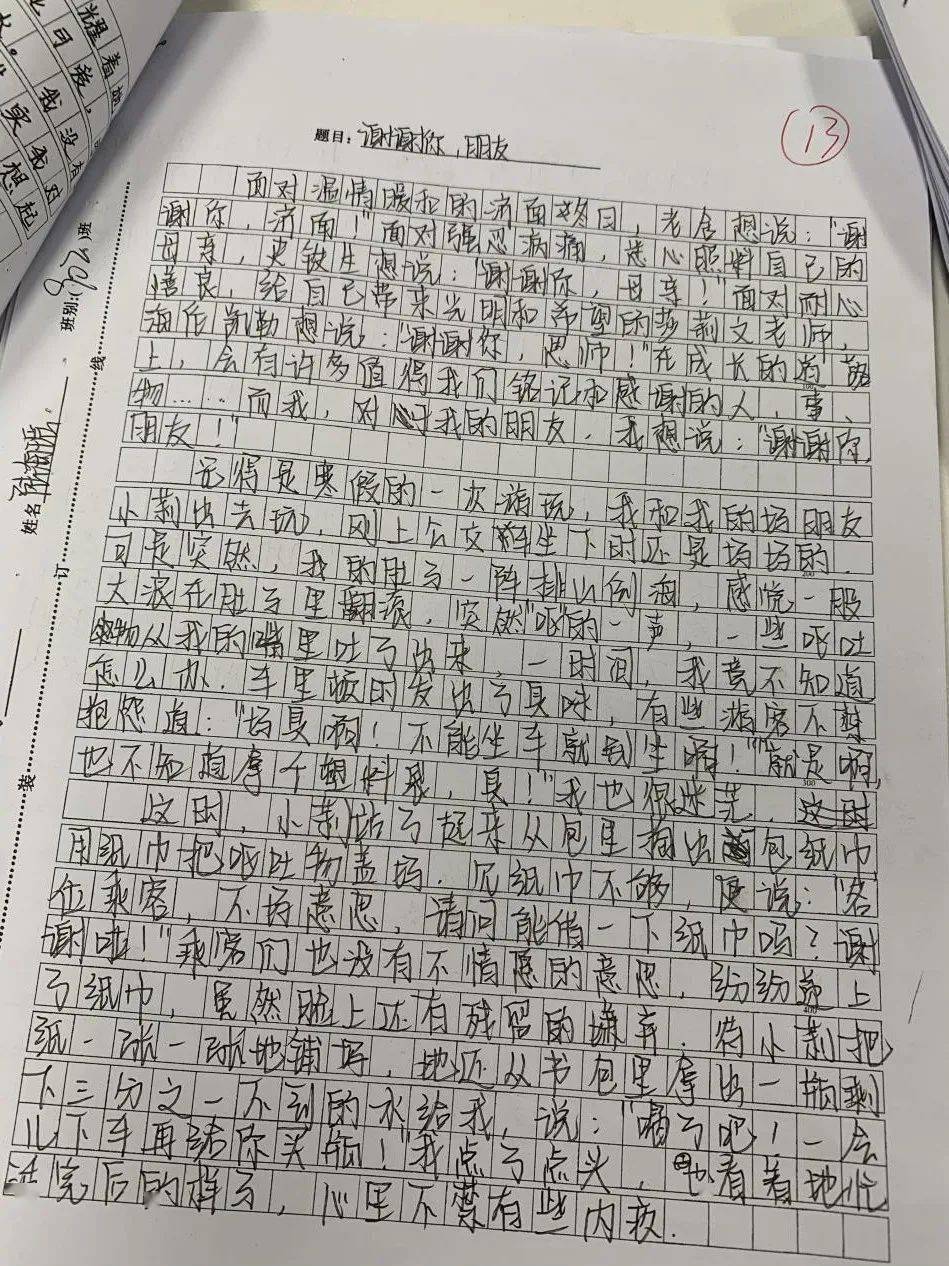 题目：谢谢你，朋友
13
面对温情暖和的济南冬日，老舍想说："谢
谢你，济南！"面对强忍病痛，悉心照料自己的
母亲，史铁生想说："谢谢你，母亲！"面对耐心
善良，给自己带来光明和希望的莎莉文老师，
海伦凯勒想说："谢谢你，恩师！"在成长的
上，会有许多值得我们铭记和感谢的人，事，
物……而我，对于我的朋友，我想说："谢谢你，
朋友！"
记得是寒假的一次游玩，我和我的好朋友
小莉出去玩，刚上公交车坐下时还是好好的，
可是突然，我的肚子一阵排山倒海，感觉一股
大浪在肚子里翻滚，突然"呕"的一声，一些呕吐
物从我的嘴里吐了出来，一时间，我竟不知道
怎么办．车里顿时发出了臭味，有些游客不禁
抱怨道："好臭啊！不能坐车就别坐啊！""就是啊，
也不知道拿个塑料袋，臭！"我也很迷茫．这时
这时，小莉站了起来从包里掏出包纸巾
用纸巾把呕吐物盖好．见纸巾不够，便说："各
位乘客，不好意思，请问能借一下纸巾吗？谢
谢啦！"乘客们也没有不情愿的意思，纷纷递上
了纸巾，虽然脸上还有残留的嫌弃．待小莉把
纸一张一张地铺好，她还从书包里拿出一瓶剩
下三分之一不到的水给我，说："喝了吧！一会
儿下车再给你买瓶！"我点了点头，看着她忙
完后的样子，心里不禁有些内疚．
班别：802班
姓名
装
订
线
200
300
400